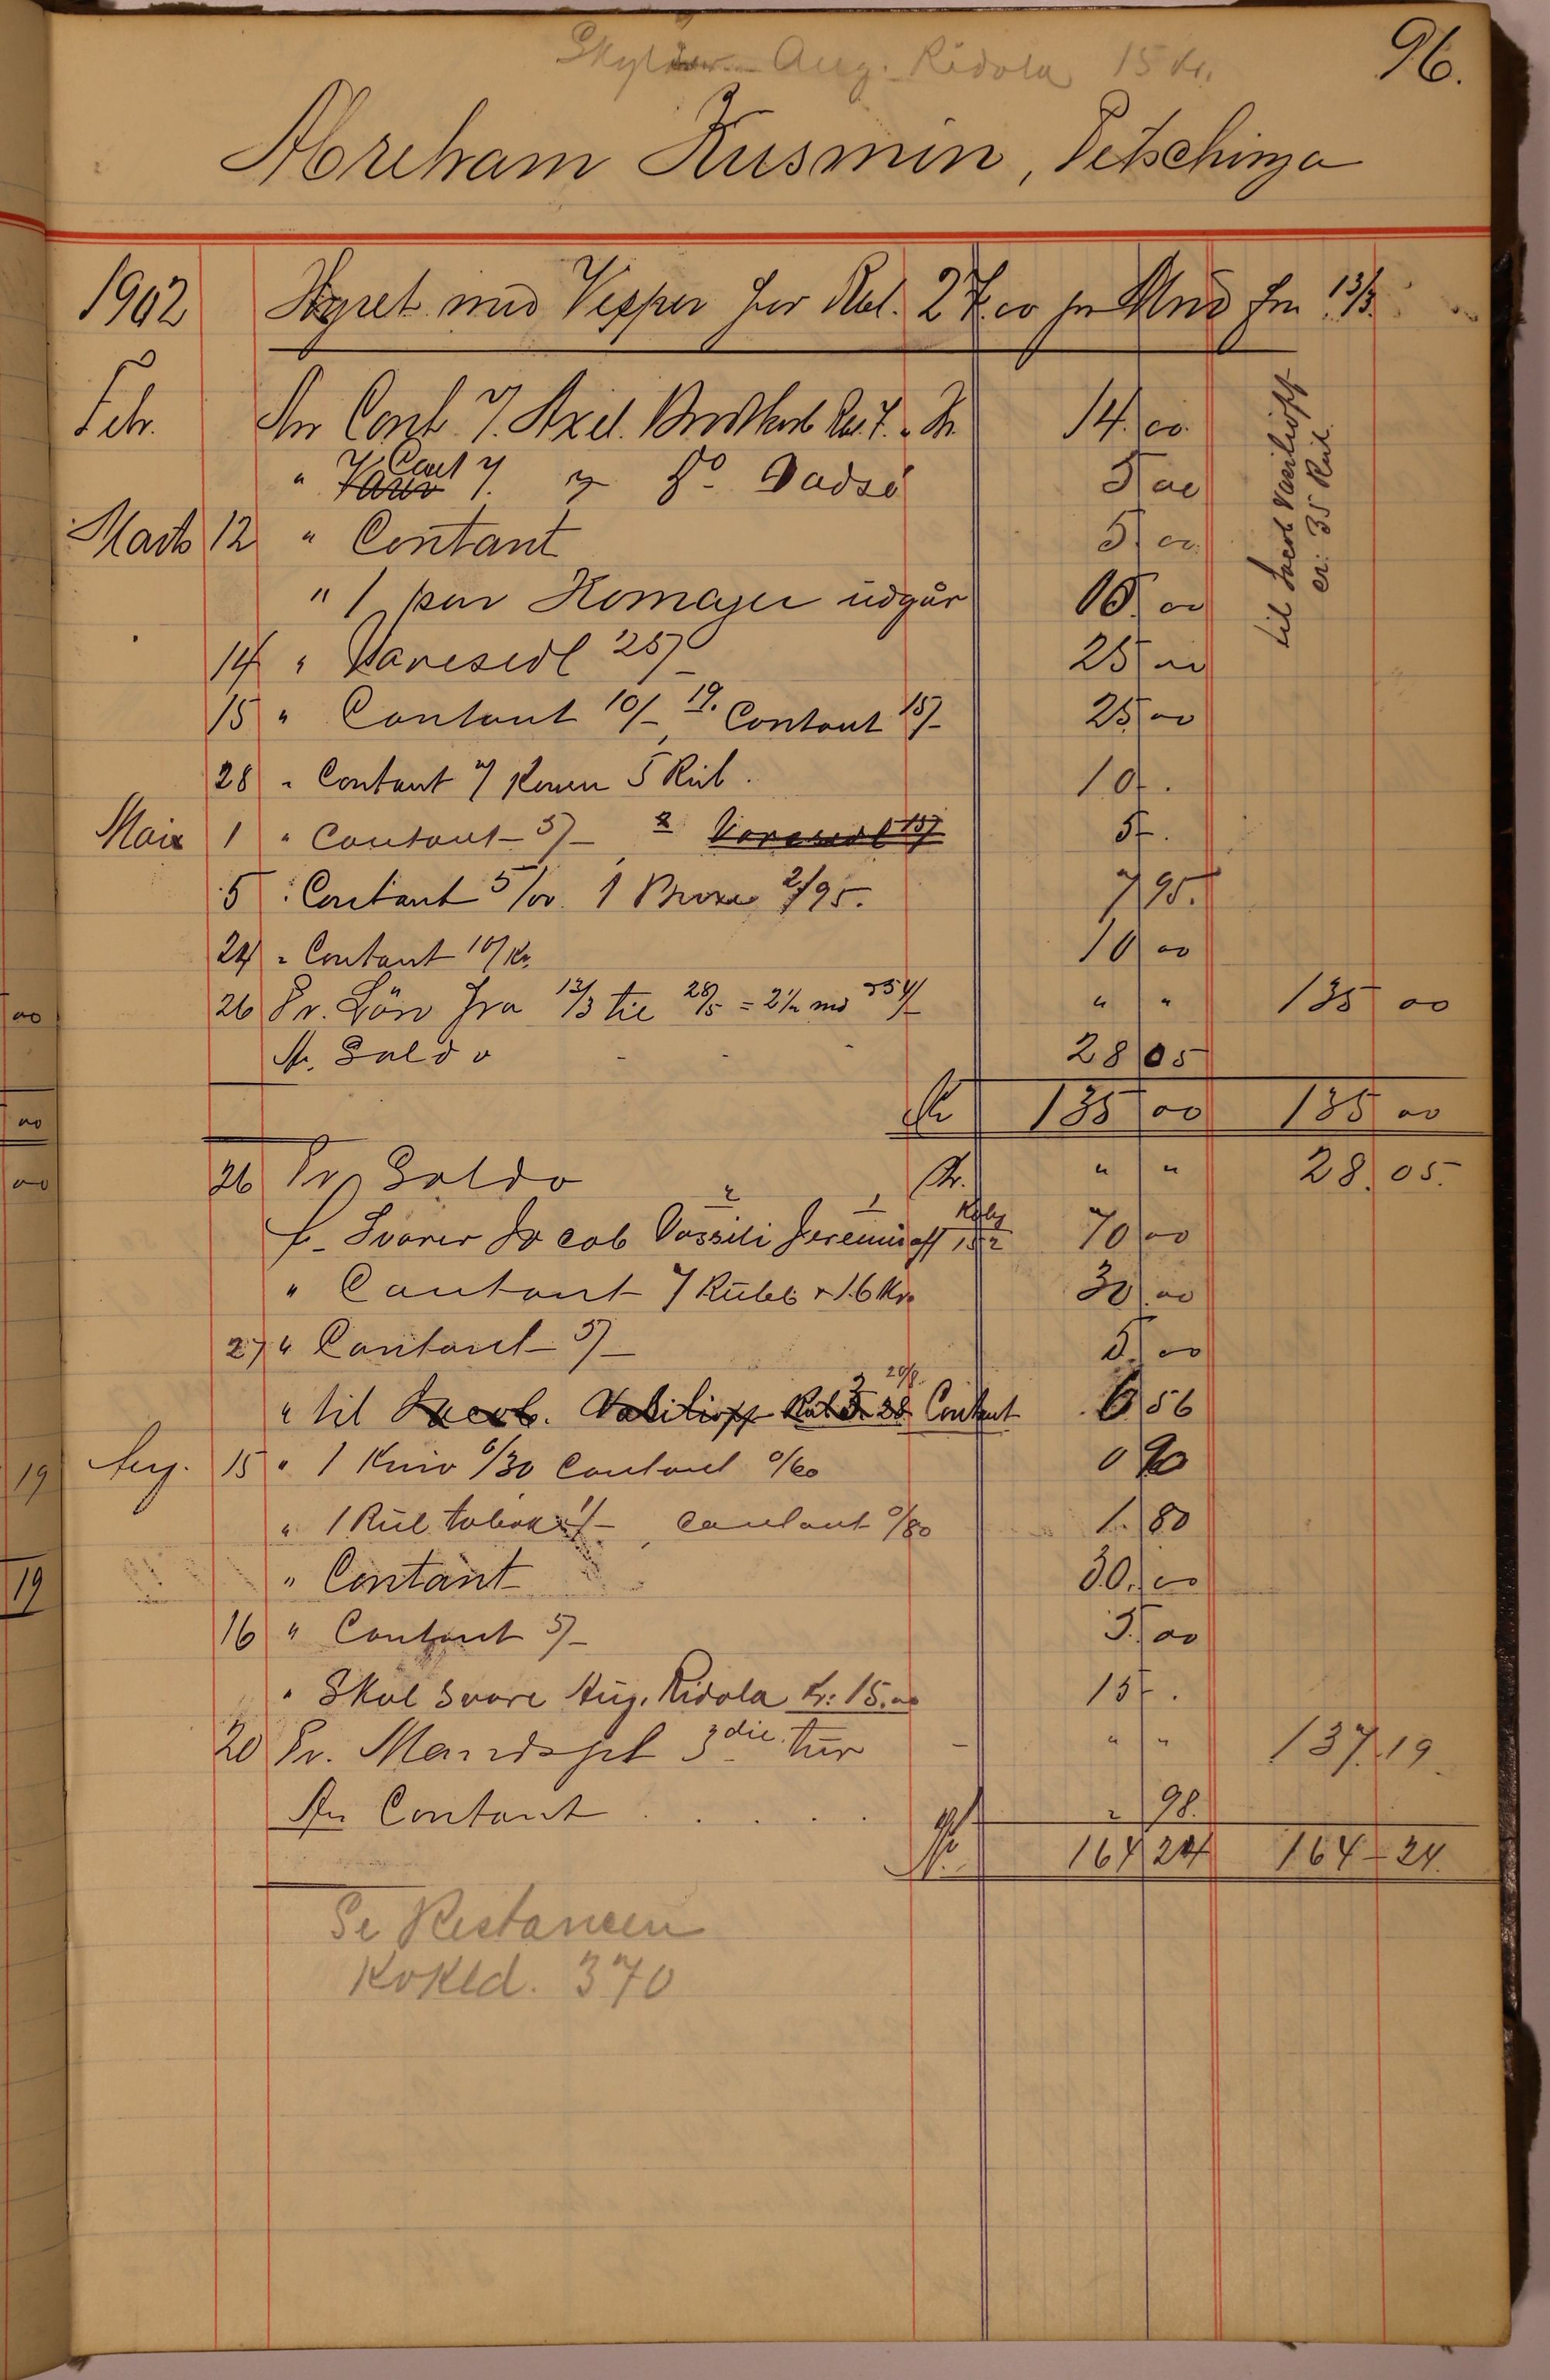 Aug. Ridola 15 Kr.
96.
Abreham Kusmin, Petschinga
1902 Hyret med Vesper for Rbl. 27.00 pr Mnd fra 13/3.
Febr. An Cont 7. Axel Rbl. 7. Kr. 14.00
" Cont 7. Do Vadsö 5 00
Marts 12 " Contant 5 00
" 1 par Komager udgår 15.00
14 " Varesedl 25/- 25 00
15 " Contant 10/-, 19. Contant 15/- 25.00
28 " Contant 7 Konen 5 Rub. 10 - .
Mai 1 " Contant 5/-, 2 Varesedl 15/- 5 - .
5 " Contant 5/00. 1 Buxe 2/95. 7 95.
24 " Contant 10/Kr. 10 00
26 Pr. Lön fra 13/3 til 28/5 = 2½ md 54/- " " 135 00
An Saldo - - - 28 05
Kr 135 00 135 00
26 Pr Saldo Kr. " " 28.05.
Svarer Jacob Vassili Jeremieoff 152 70 00
" Contant 7 Rubl + 16 Kr. 30.00
27 " Contant 5/- 5.00
" til Jacob. Vasilioff Contant 6 56
Aug. 15 " 1 Kniv 0/30 Contant 0/60 0 90
" 1 Rul tobak 1/-, Contant 0/80 1.80
" Contant 30.00
16 " Contant 5/- 5.00
" Skal svare Aug. Ridola Kr: 15.00 15 - .
20 Pr. Mandsjul 3die tur - " " 137.19.
An Contant . . . . " 98.
Kr. 164 24 164 - 24.
Se Restancen
KoKld. 370
til Jacob Vasilioff
er: 35 Rub.
00
00
00
19
19